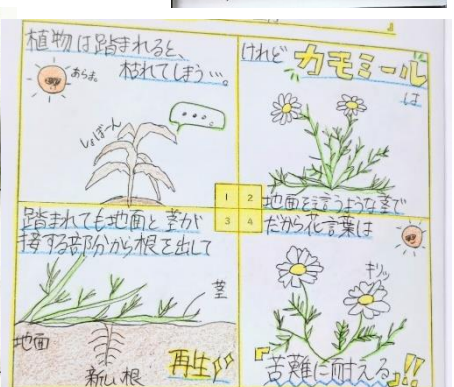 植物は踏まれると、
枯れてしまう…。
あらま。
しょぼーん
....
けれど カモミール
は
地面を言うような茎で
1 2
3 4
踏まれても地面と茎が
接する部分から根を出して
茎
地面
新しい根
再生!!
だから花言葉は
キリッ
『苦難に耐える』!!